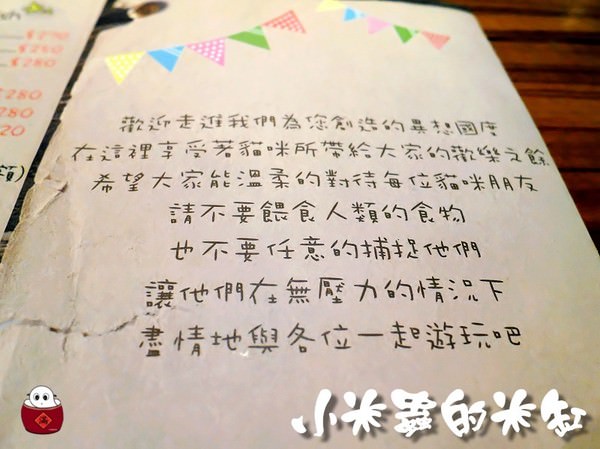 $250
$280
$280
$20
歡迎走進我們為您創造的異想國度
在這裡享受著貓咪所帶給大家的歡樂之餘
希望大家能溫柔的對待每位貓咪朋友
請不要餵食人類的食物
也不要任意的捕捉他們
讓他們在無壓力的情況下
盡情地與各位一起遊玩吧
小米蟲的米缸